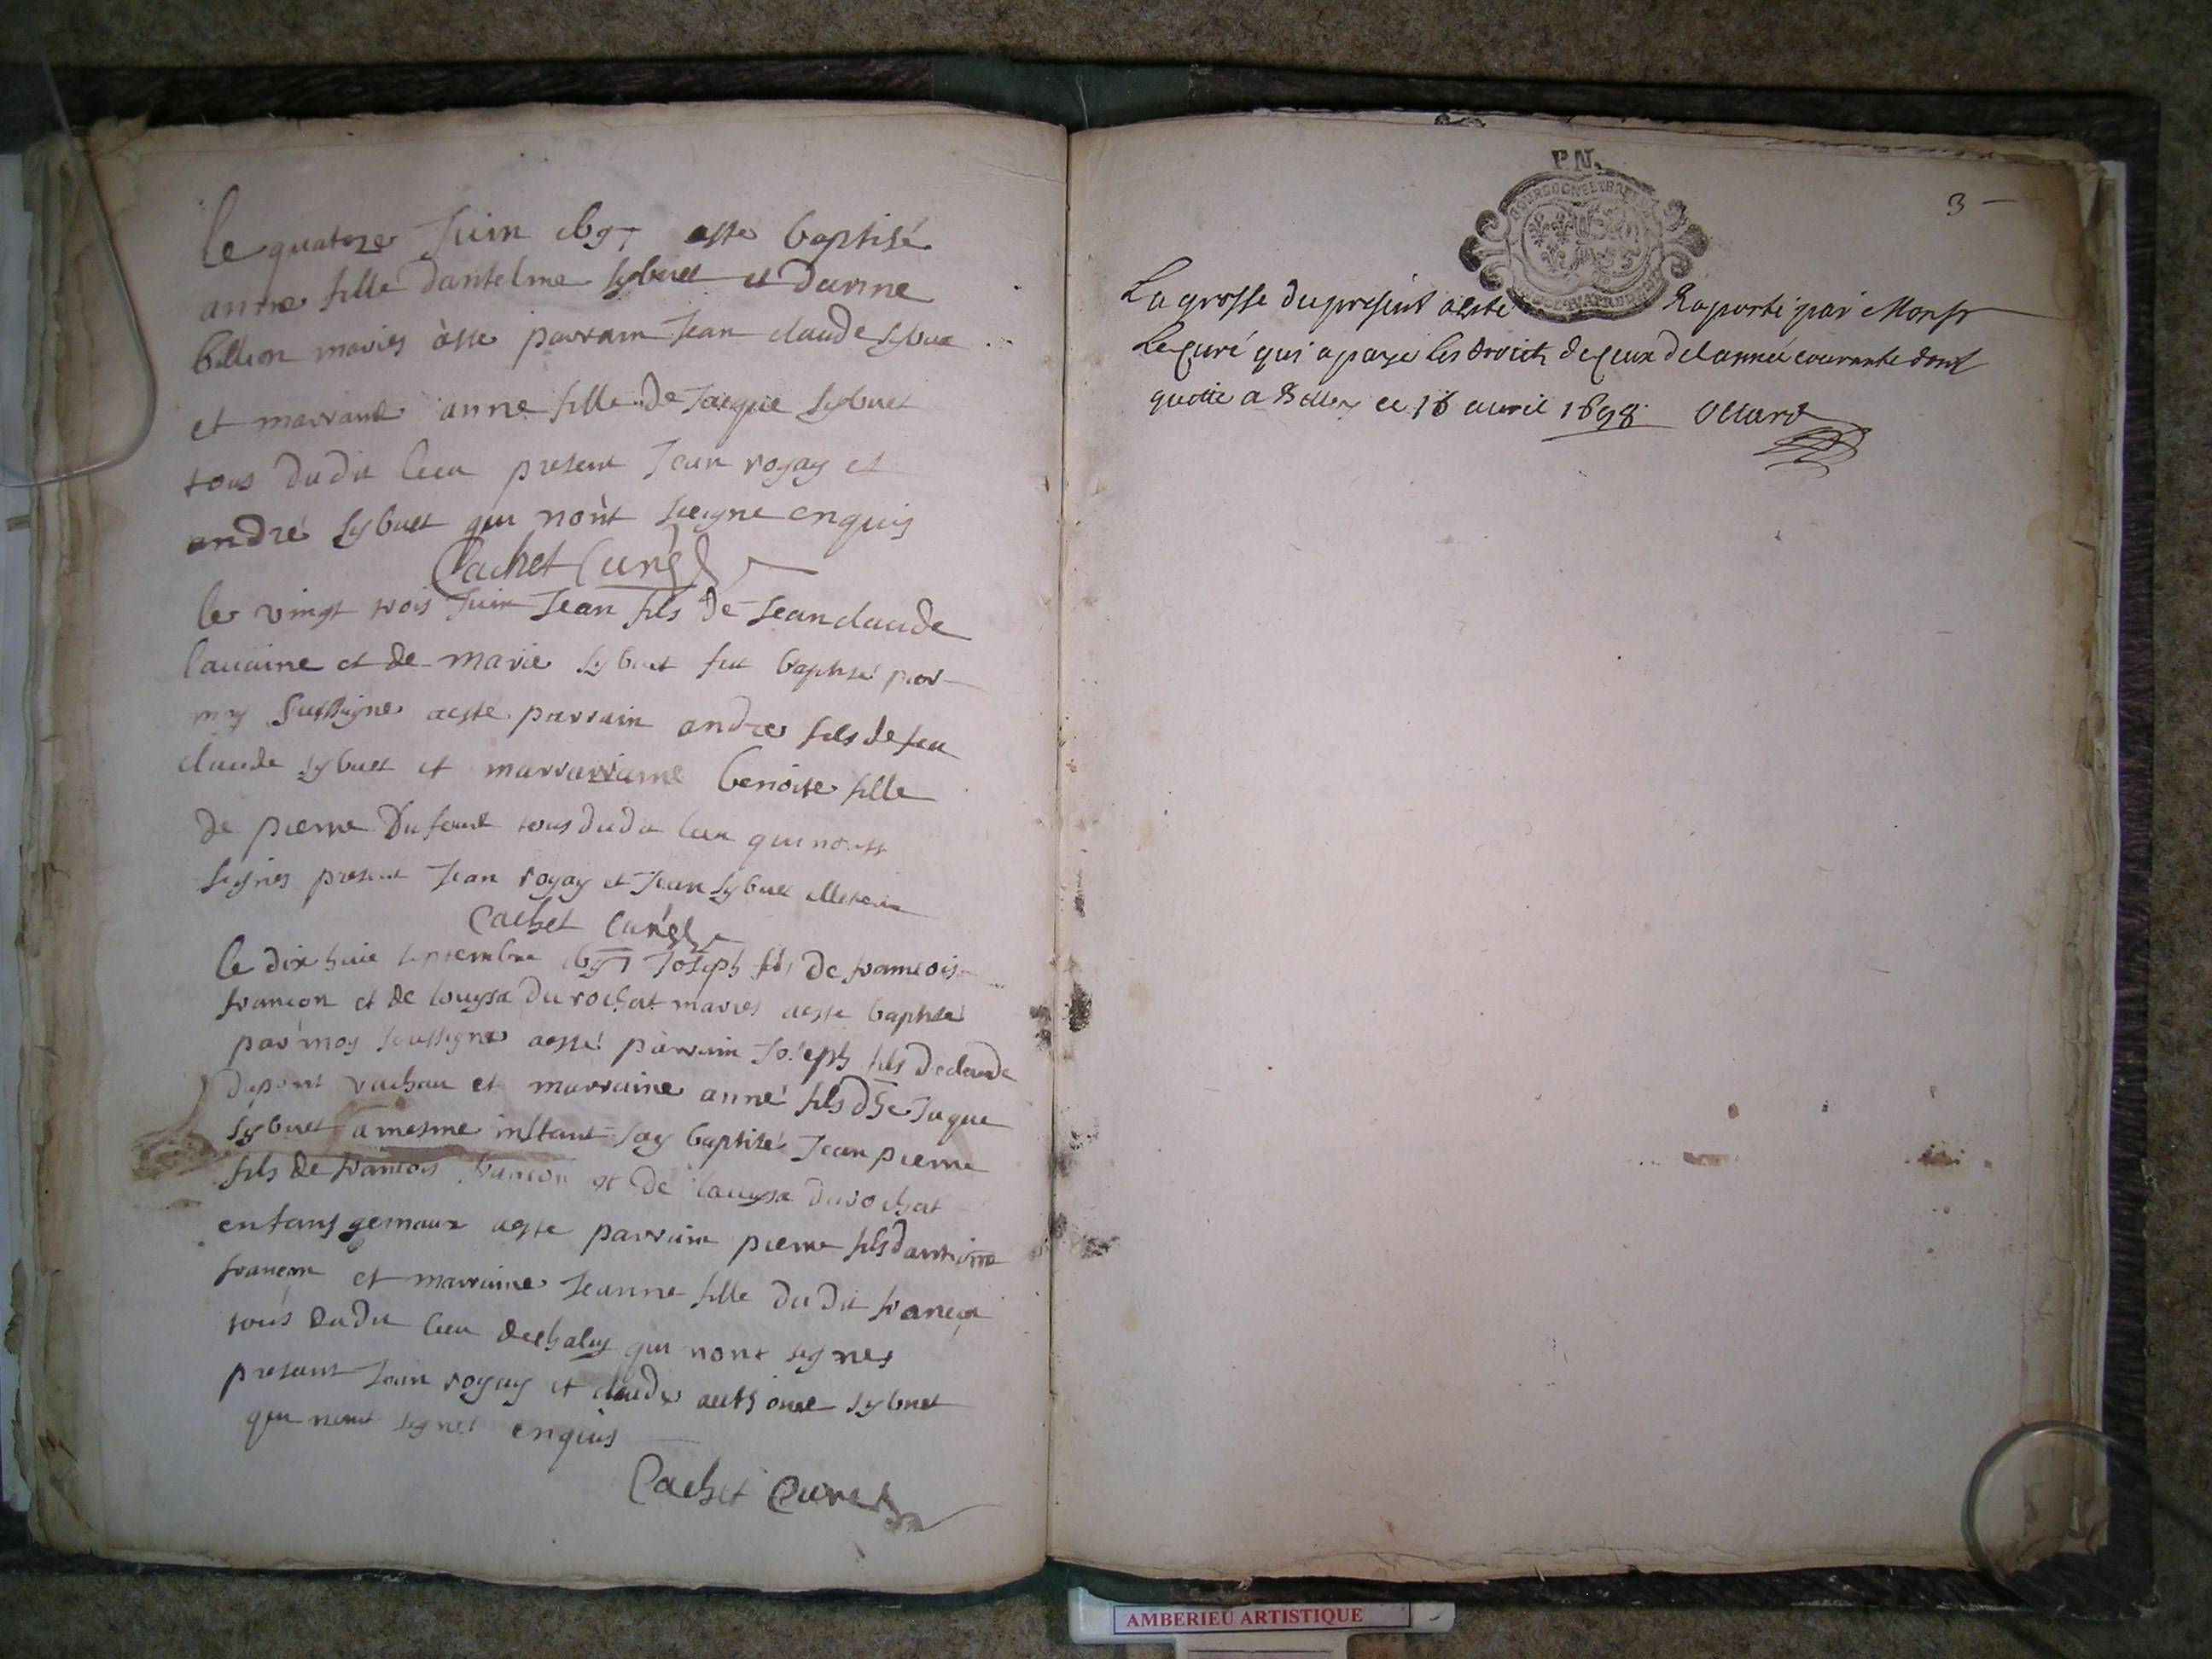 le quatorze Juin 1697 a esté baptisé
anne fille dantelme sybuet et danne
billion mariés à esté parrain Jean claude sybuet
et marraine anne fille de Jacque sybuet
tous dudit lieu present Jean royay et
andré sybuet qui nont signe enquis
Cachet Curé
le vingt trois Juin Jean fils de Jean claude
lauaine et de marie sybuet fut baptisé par
moy sussigne aesté parrain andre fils de feu
claude sybuet et marrarraine benoite fille
de pierre Dufour tous dudit lieu qui nont
signes present Jean royay et Jean sybuet
Cachet Curé
le dix huit septembre 1697 Joseph fils de francois
francon et de louysa durochat mariés aesté baptisé
par moy soussigne aesté parrain Joseph fils de claude
dupont vachat et marraine anne fils de Jaque
sybuet a mesme instant Jay baptisé Jean pierre
fils de francois francon et de louysa durochat
enfans gemaux aesté parrain pierre fils dantoine
francon et marraine Jeanne fille dudit francon
tous dudit lieu dechaley qui nont signes
present Jean royay et claude anthoine sybuet
qui nont signes enquis
Cachet Curé
P.N.
BOURGOGNE ET BRESSE
3
La grosse du present aeste Raporté par Monsr
Le Curé qui a payé les droits de ceux de lannée courante dont
quotte a Belley ce 16 avril 1698 Ottard
AMBERIEU ARTISTIQUE